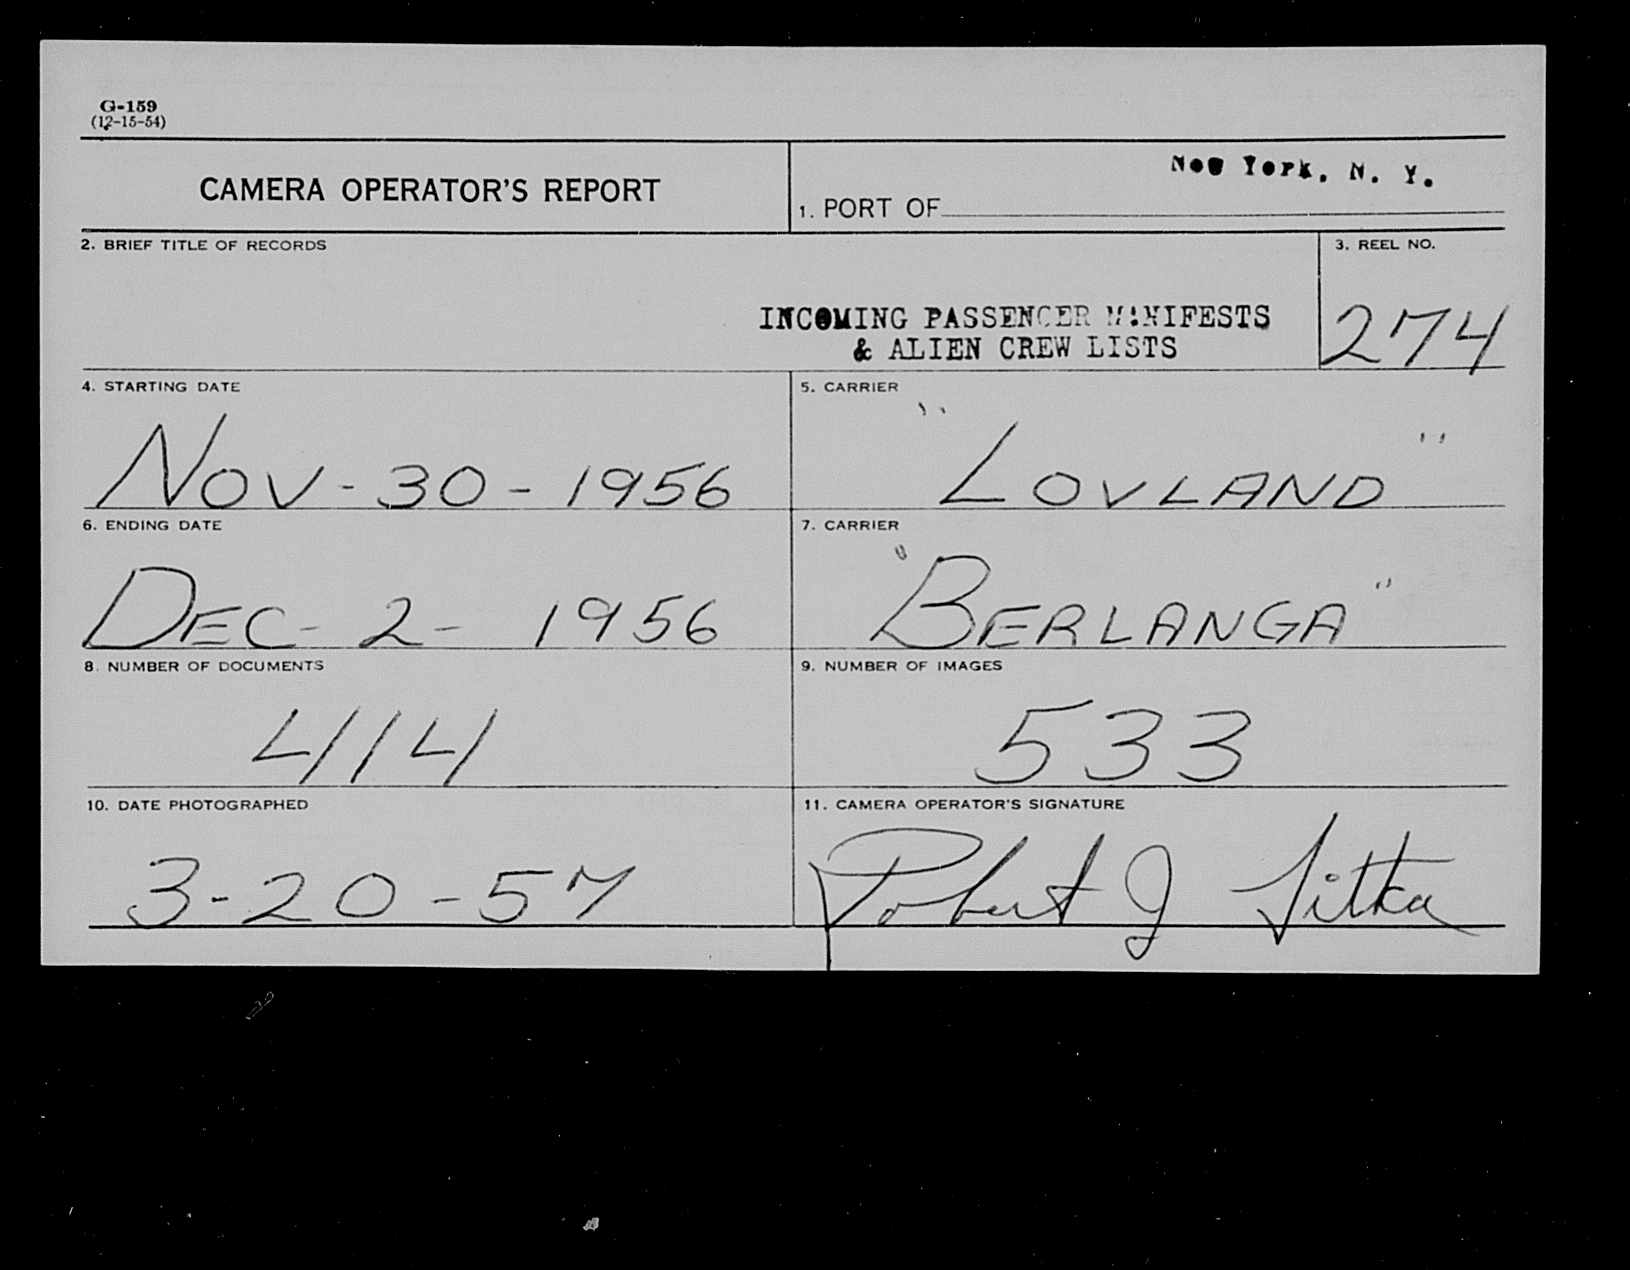 G-159
(12-15-54)
CAMERA OPERATOR'S REPORT
1. PORT OF New York, N. Y.
2. BRIEF TITLE OF RECORDS
INCOMING PASSENGER MANIFESTS
& ALIEN CREW LISTS
3. REEL NO.
274
4. STARTING DATE
NOV-30-1956
5. CARRIER
"LOVLAND"
6. ENDING DATE
DEC-2-1956
7. CARRIER
"BERLANGA"
8. NUMBER OF DOCUMENTS
414
9. NUMBER OF IMAGES
533
10. DATE PHOTOGRAPHED
3-20-57
11. CAMERA OPERATOR'S SIGNATURE
Robert J